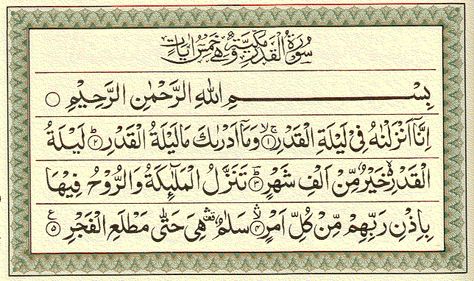 سُوْرَةُ الْقَدْرِ مَكِّيَّةٌ وَّهِيَ خَمْسُ اٰيَاتٍ
بِسْمِ اللهِ الرَّحْمٰنِ الرَّحِيْمِ ۝
اِنَّاۤ اَنْزَلْنٰهُ فِيْ لَيْلَةِ الْقَدْرِ ۝۱ۚۖ وَمَاۤ اَدْرٰىكَ مَا لَيْلَةُ الْقَدْرِ ۝۲ؕ لَيْلَةُ
الْقَدْرِ ۙ خَيْرٌ مِّنْ اَلْفِ شَهْرٍ ۝۳ؕ تَنَزَّلُ الْمَلٰٓئِكَةُ وَالرُّوْحُ فِيْهَا
بِاِذْنِ رَبِّهِمْ ۚ مِنْ كُلِّ اَمْرٍ ۝۴ۙۛ سَلٰمٌ ۛ۫ هِيَ حَتّٰى مَطْلَعِ الْفَجْرِ ۝۵ ع